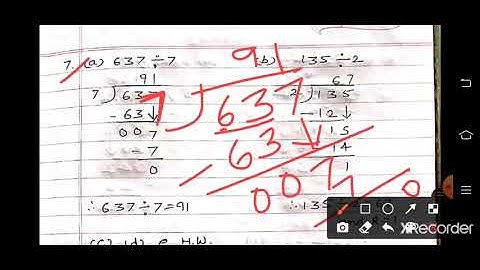 7. (a) 637 ÷ 7
91
7 ) 637
- 63 ↓
007
- 7
0
∴ 637 ÷ 7 = 91
(b) 135 ÷ 2
67
2 ) 135
- 12 ↓
15
14
1
∴ 135
91
7 ) 637
- 63 ↓
007
7
0
(c) (d) e H.W.
XRecorder